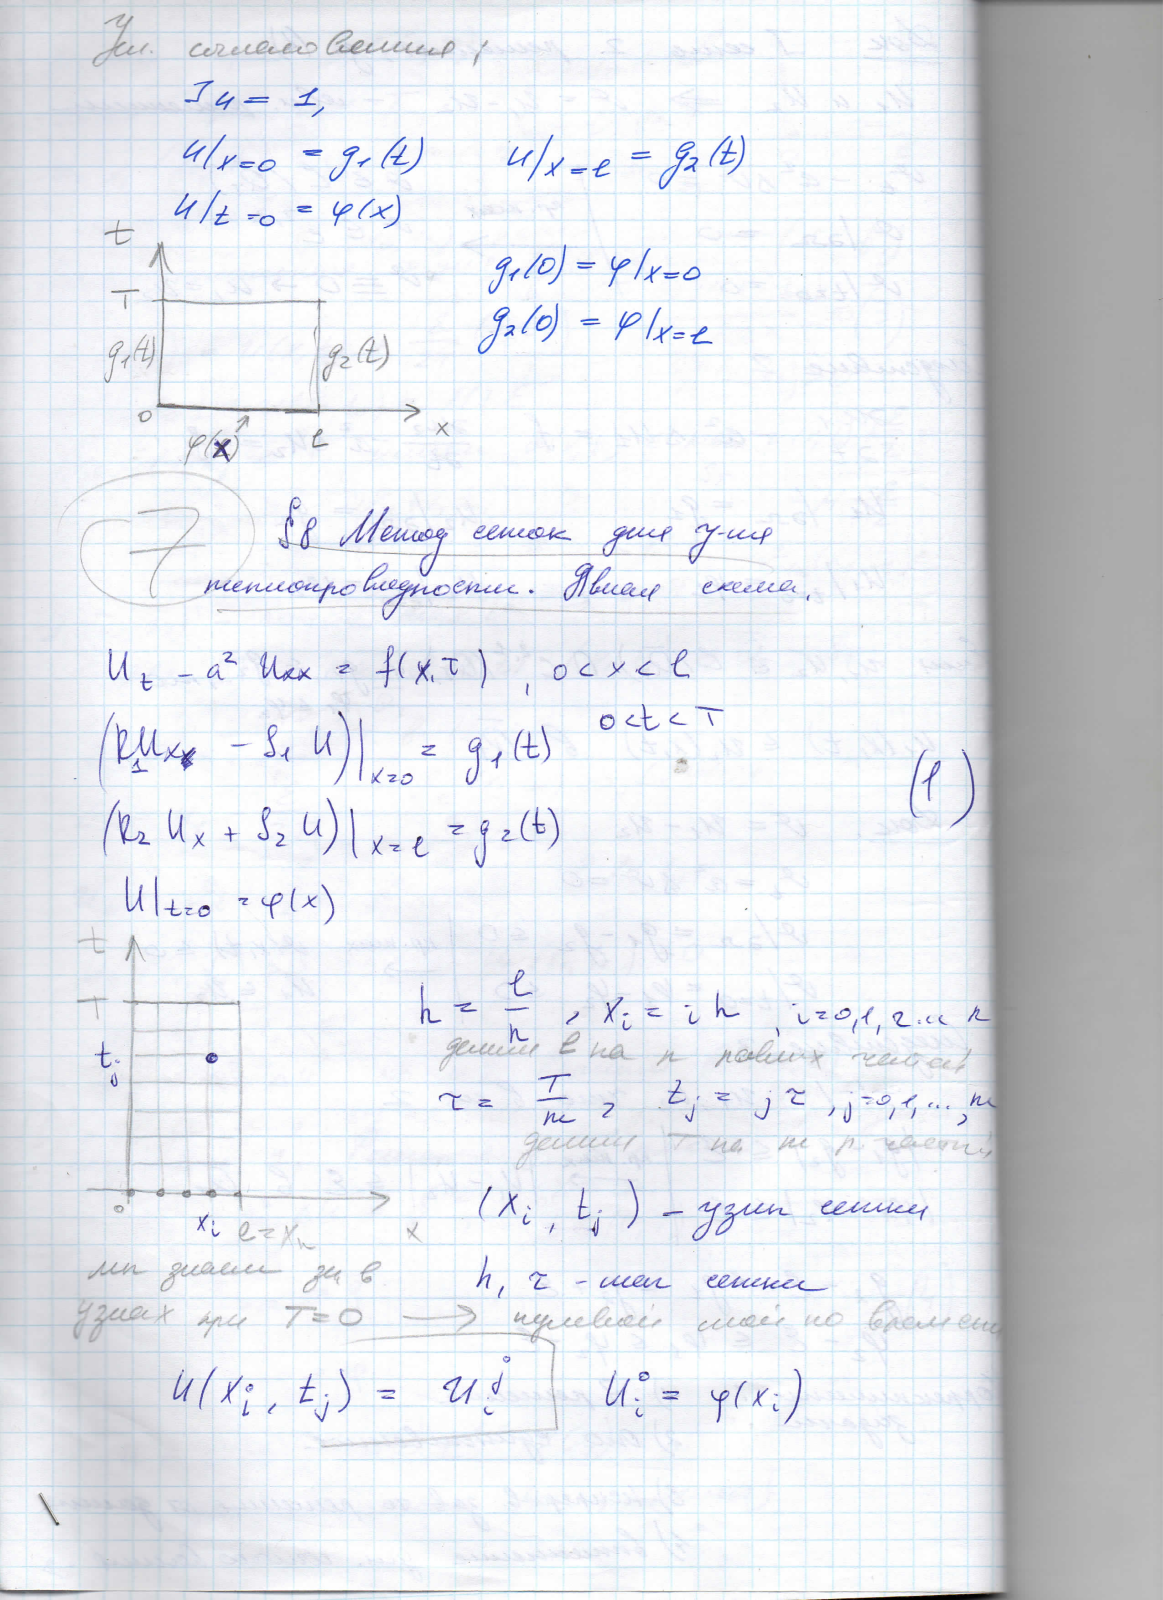 Усл. согласования:
Iu = 1,
u|x=0 = g1(t) u|x=l = g2(t)
u|t=0 = φ(x)
t
g1(0) = φ|x=0
T
g2(0) = φ|x=l
g1(t) g2(t)
0 l x
φ(x)
7
§8 Метод сеток для ур-ия
теплопроводности. Явная схема.
Ut - a² Uxx = f(x,T), 0 < x < l
0 < t < T
(R1 Ux - S1 U)|x=0 = g1(t)
(1)
(R2 Ux + S2 U)|x=l = g2(t)
U|t=0 = φ(x)
t
T
h = l/n, xi = i h, i=0,1,2... n
делим l на n равных частей
tj
τ = T/m, tj = j τ, j=0,1,...,m
делим T на m р. частей
0 xi l=xn x
(xi, tj) - узлы сетки
мы знаем зн в
h, τ - шаг сетки
узлах при T=0 → нулевой слой по времени
U(xi, tj) = Ui^j Ui^0 = φ(xi)